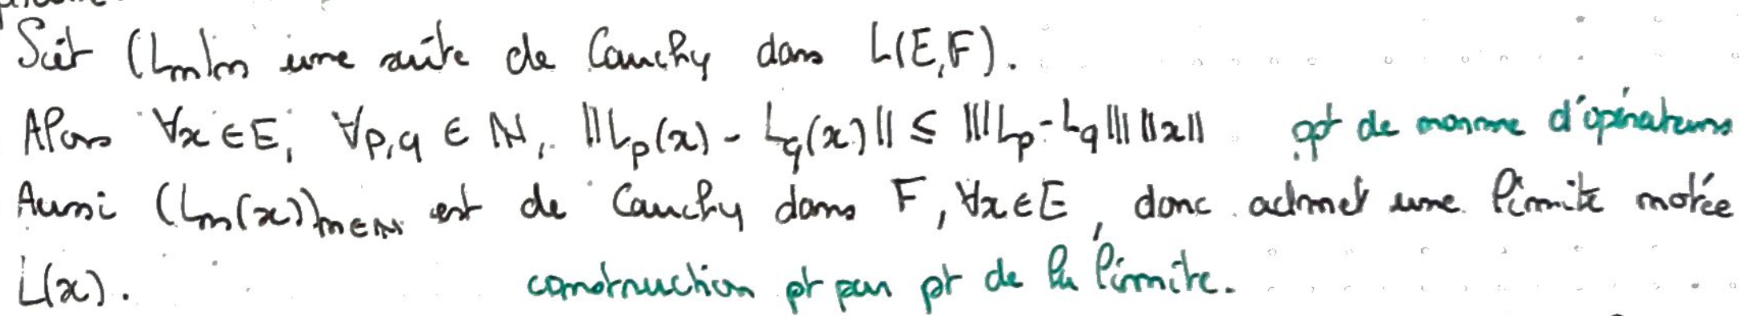 Soit (Ln)n une suite de Cauchy dans L(E,F).
Alors ∀x ∈ E, ∀p,q ∈ ℕ, ||Lp(x) - Lq(x)|| ≤ |||Lp - Lq||| ||x|| ppt de norme d'opérateurs
Aussi (Ln(x))n∈ℕ est de Cauchy dans F, ∀x∈E, donc admet une limite notée
L(x). construction pt par pt de la limite.